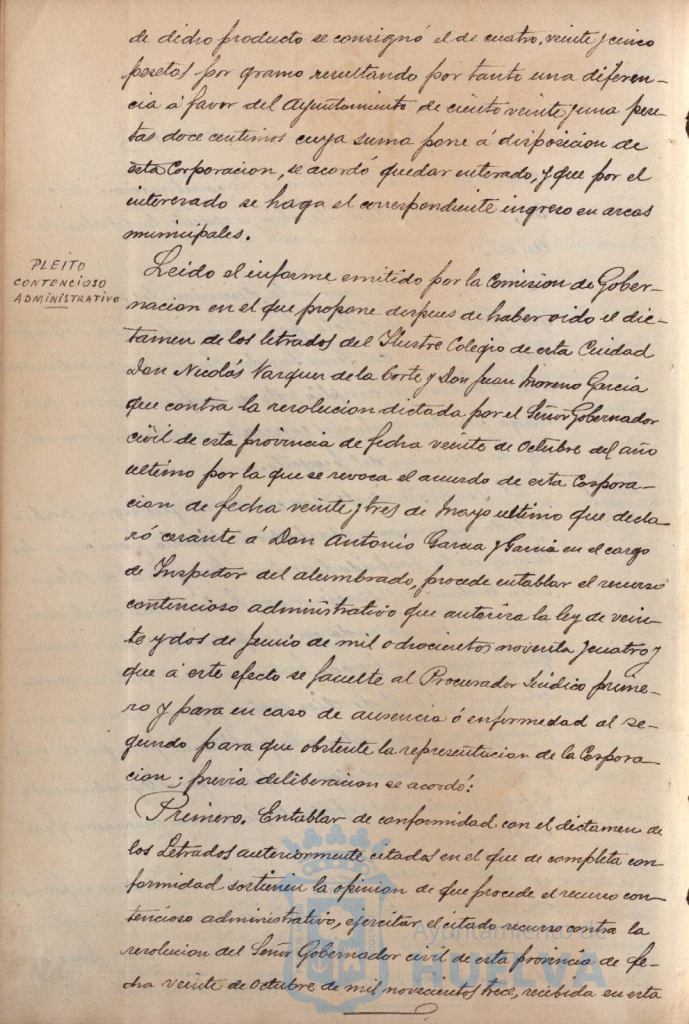 de dicho producto se consignó el de cuatro, veinte y cinco
pesetas por gramo resultando por tanto una diferen-
cia á favor del Ayuntamiento de ciento veinte y una pese-
tas doce centimos cuya suma pone á disposicion de
esta Corporacion, se acordó quedar enterado, y que por el
interesado se haga el correspondiente ingreso en arcas
municipales.
PLEITO
CONTENCIOSO
ADMINISTRATIVO
Leido el informe emitido por la Comision de Gober-
nacion en el que propone despues de haber oido el dic-
tamen de los letrados del Ilustre Colegio de esta Ciudad
Don Nicolás Vazquez de la Corte y Don Juan Moreno Garcia
que contra la resolucion dictada por el Señor Gobernador
civil de esta provincia de fecha veinte de Octubre del año
ultimo por la que se revoca el acuerdo de esta Corpora-
cion de fecha veinte y tres de Mayo ultimo que decla-
ró cesante á Don Antonio Garcia y Garcia en el cargo
de Inspector del alumbrado, procede entablar el recurso
contencioso administrativo que autoriza la ley de vein-
te y dos de Junio de mil ochocientos noventa y cuatro y
que á este efecto se faculte al Procurador Sindico prime-
ro y para en caso de ausencia ó enfermedad al se-
gundo para que obstente la representacion de la Corpora-
cion; previa deliberacion se acordó:
Primero. Entablar de conformidad con el dictamen de
los Letrados anteriormente citados en el que de completa con-
formidad sostienen la opinion de que procede el recurso con-
tencioso administrativo, ejercitar el citado recurso contra la
resolucion del Señor Gobernador civil de esta provincia de fe-
cha veinte de Octubre de mil novecientos trece, recibida en esta
Ayuntamiento de
HUELVA